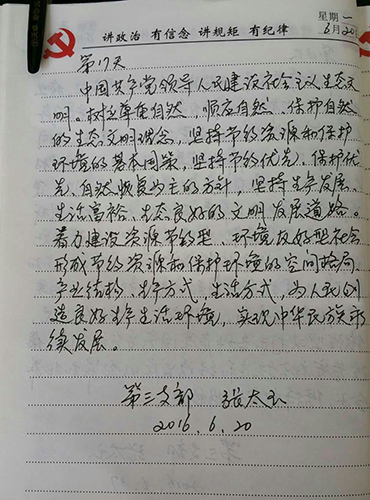 讲政治 有信念 讲规矩 有纪律
星期一
6月20
第17天
中国共产党领导人民建设社会主义生态文
明。树立尊重自然、顺应自然、保护自然
的生态文明理念，坚持节约资源和保护
环境的基本国策，坚持节约优先、保护优
先、自然恢复为主的方针，坚持生产发展、
生活富裕、生态良好的文明发展道路。
着力建设资源节约型、环境友好型社会
形成节约资源和保护环境的空间格局、
产业结构、生产方式、生活方式，为人民创
造良好生产生活环境，实现中华民族永
续发展。
第三支部 张太玉
2016.6.20